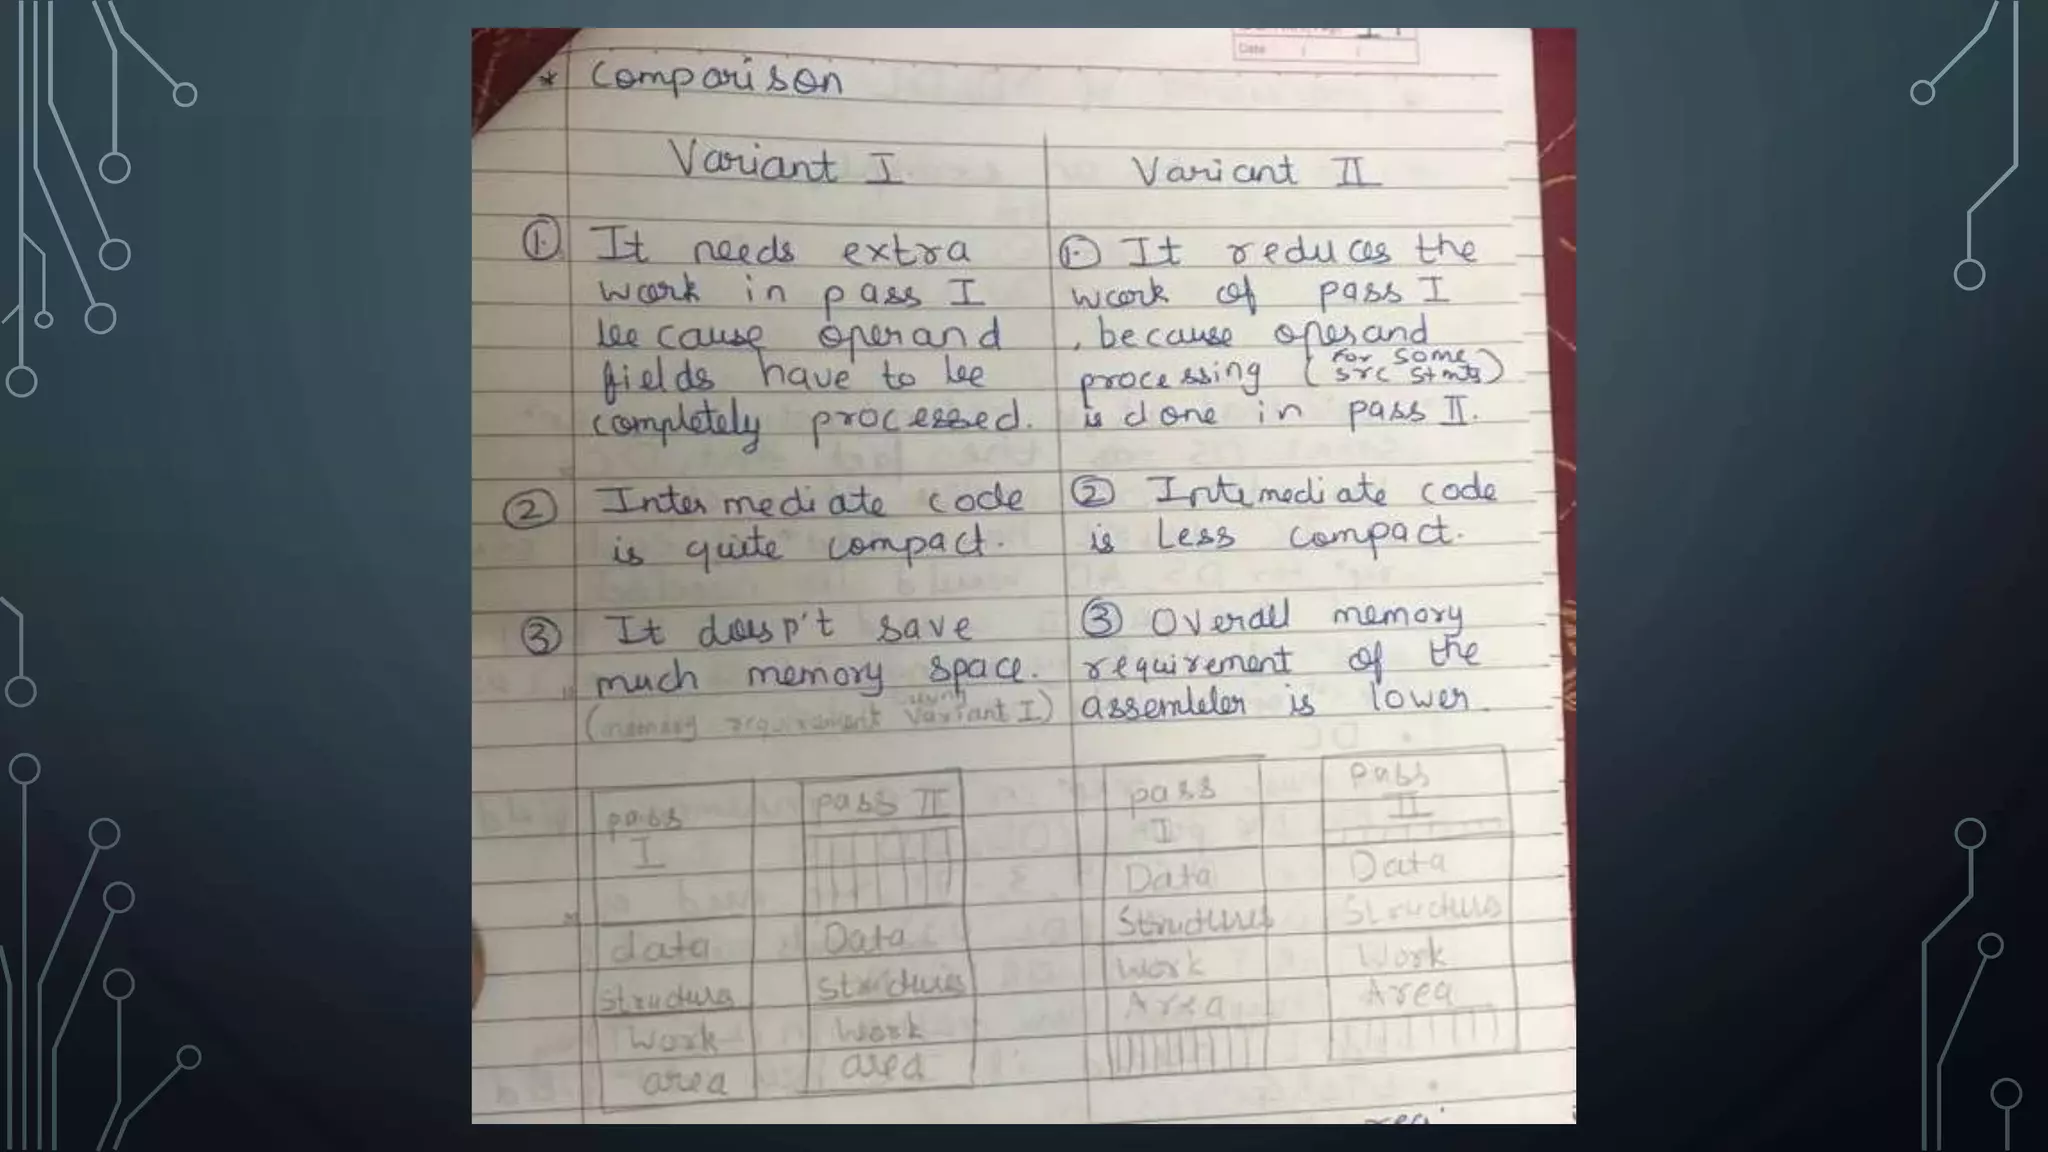 Date / /
* Comparison
Variant I
① It needs extra
work in pass I
because operand
fields have to be
completely processed.
② Intermediate code
is quite compact.
③ It doesn't save
much memory space.
(memory requirement using Variant I)
pass I
data
structures
Work
area
pass II
Data
structures
Work
area
Variant II
① It reduces the
work of pass I
, because operand
processing (for some src stmts)
is done in pass II.
② Intemediate code
is Less compact.
③ Overall memory
requirement of the
assembler is lower.
pass
I
Data
Structures
Work
Area
Pass
II
Data
Structures
Work
Area